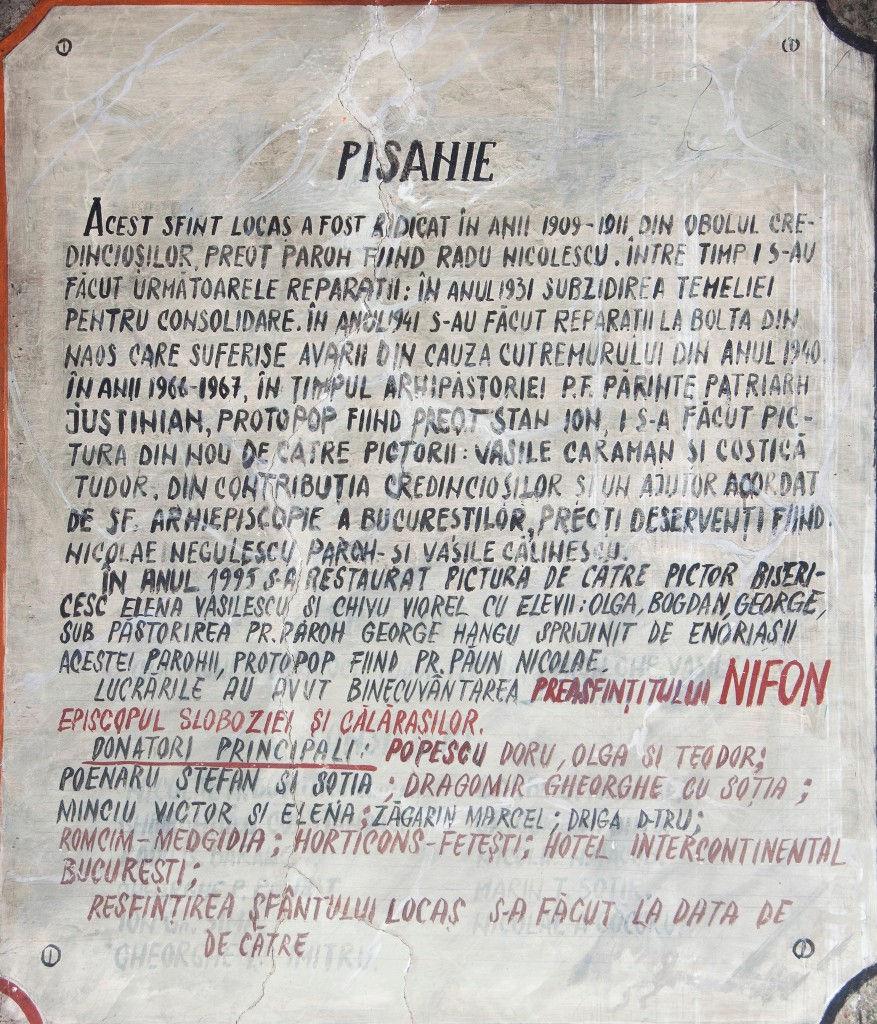 PISANIE
ACEST SFINT LOCAS A FOST RIDICAT ÎN ANII 1909-1911 DIN OBOLUL CRE-
DINCIOȘILOR, PREOT PAROH FIIND RADU NICOLESCU. ÎNTRE TIMP I S-AU
FĂCUT URMĂTOARELE REPARATII: ÎN ANUL 1931 SUBZIDIREA TEMELIEI
PENTRU CONSOLIDARE. ÎN ANUL 1941 S-AU FĂCUT REPARATII LA BOLTA DIN
NAOS CARE SUFERISE AVARII DIN CAUZA CUTREMURULUI DIN ANUL 1940.
ÎN ANII 1966-1967, ÎN TIMPUL ARHIPĂSTORIEI P.F. PĂRINTE PATRIARH
JUSTINIAN, PROTOPOP FIIND PREOT STAN ION, I S-A FĂCUT PIC-
TURA DIN NOU DE CĂTRE PICTORII: VASILE CARAMAN SI COSTICĂ
TUDOR, DIN CONTRIBUȚIA CREDINCIOSILOR ȘI UN AJUTOR ACORDAT
DE SF. ARHIEPISCOPIE A BUCURESTILOR, PREOȚI DESERVENȚI FIIND
NICOLAE NEGULESCU PAROH- SI VASILE CĂLINESCU.
ÎN ANUL 1995 S-A RESTAURAT PICTURA DE CĂTRE PICTOR BISERI-
CESC ELENA VASILESCU SI CHIVU VIOREL CU ELEVII: OLGA, BOGDAN, GEORGE,
SUB PĂSTORIREA PR. PAROH GEORGE HANGU SPRIJINIT DE ENORIASII
ACESTEI PAROHII, PROTOPOP FIIND PR. PĂUN NICOLAE.
LUCRĂRILE AU AVUT BINECUVÂNTAREA PREASFINȚITULUI NIFON
EPISCOPUL SLOBOZIEI ȘI CĂLĂRASILOR.
DONATORI PRINCIPALI: POPESCU DORU, OLGA SI TEODOR;
POENARU ȘTEFAN SI SOTIA; DRAGOMIR GHEORGHE CU SOȚIA;
MINCIU VICTOR SI ELENA; ZĂGARIN MARCEL; DRIGA D-TRU;
ROMCIM-MEDGIDIA; HORTICONS-FETEȘTI; HOTEL INTERCONTINENTAL
BUCURESTI;
RESFINȚIREA SFÂNTULUI LOCAȘ S-A FĂCUT LA DATA DE
DE CĂTRE